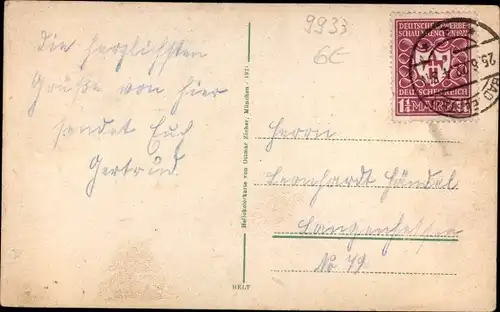 Die herzlichsten
Grüße von hier
sendet Euch
Gertrud.
9933
6€
DEUTSCHE GEWERBE
SCHAU MÜNCHEN 1922
DEUTSCHES REICH
1¼ MARK
25.6.
BAD
Herrn
Leonhardt Händel
Langenhessen
No 49
Heliokolorkarte von Ottmar Zieher, München / 1921
BELT